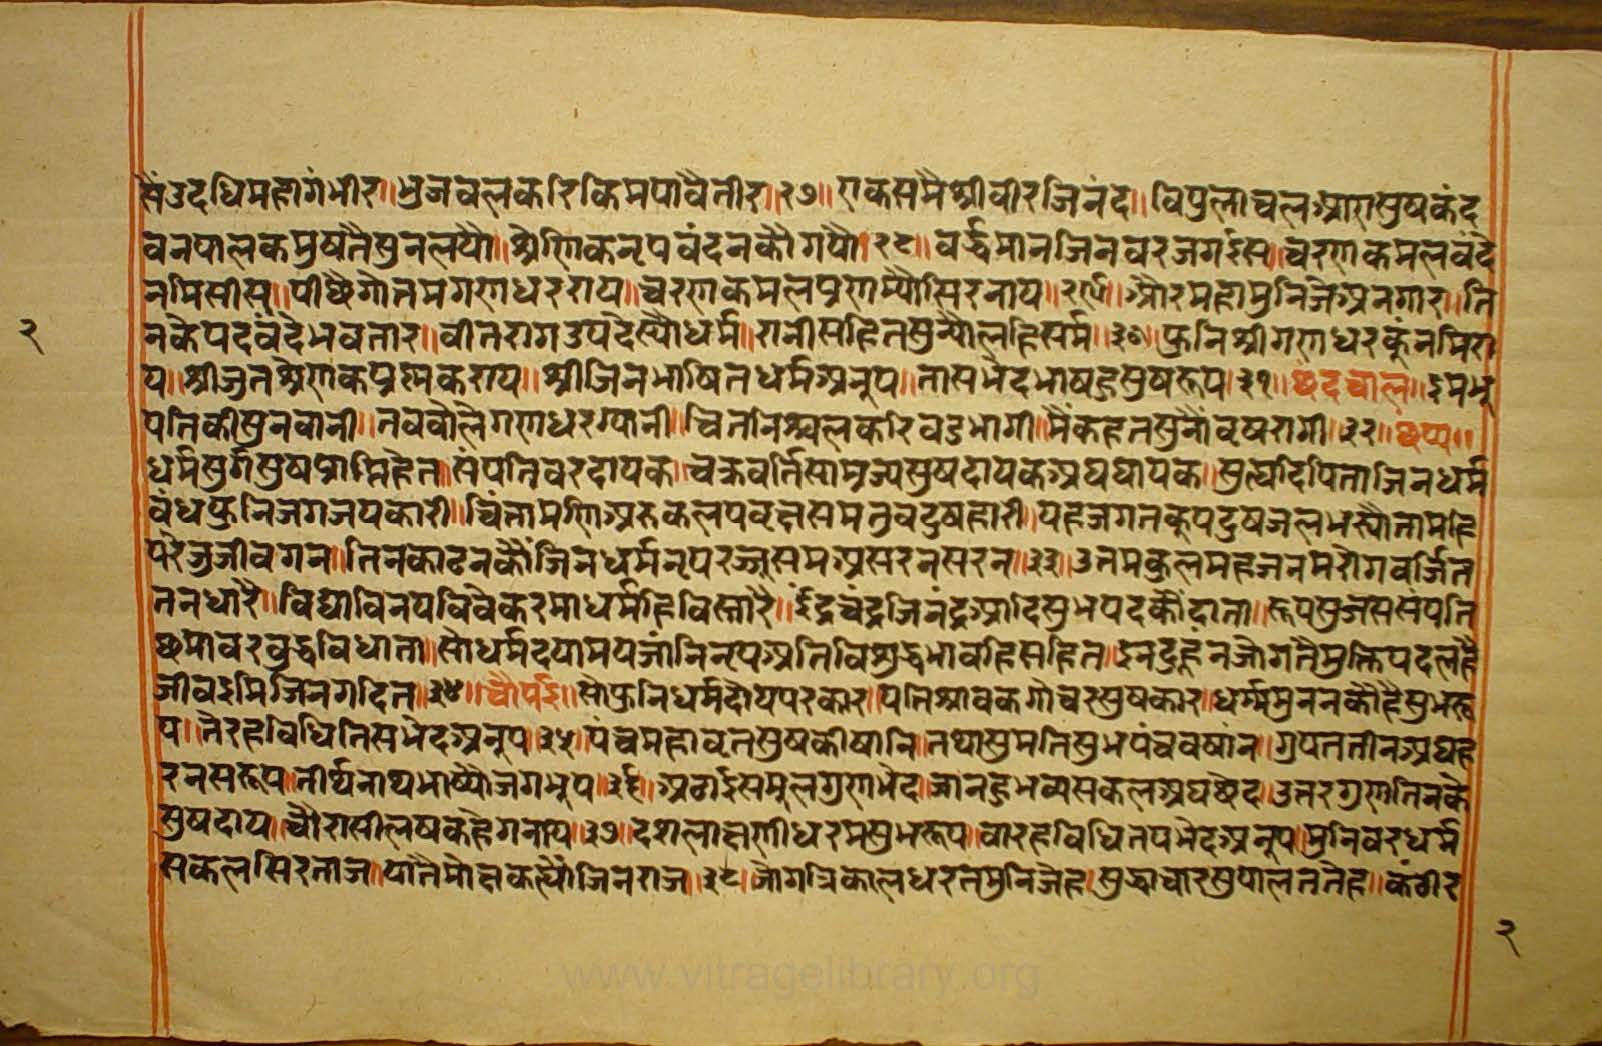 सैंउदधिमहागंभीर॥भुजबलकरिकिमपावैतीर॥२७॥एकसमैश्रीवीरजिनंद॥विपुलाचलआएसुषकंद
वनपालकमुषतैसुनलयौ॥श्रेणिकनृपवंदनकौगयौ॥२८॥वर्द्धमानजिनवरजगईस॥चरणकमलवंदै
नमिसीस॥पीछैगौतमगणधरराय॥चरणकमलप्रणम्यौसिरनाय॥२९॥औरमहामुनिजेअनगार॥ति
२
नकैपदवंदैभवतार॥वीतरागउपदेस्यौधर्म॥रानीसहितसुन्यौलहिसर्म॥३०॥फुनिश्रीगणधरकुंनमिरा
य॥श्रीजुतश्रेणकप्रश्नकराय॥श्रीजिनभाषितधर्मअनुप॥तासभेदभाषहुसुषरूप॥३१॥छंदचाल॥इमभू
पतिकीसुनवानी॥तवबोलैगणधरग्यानी॥चितनिश्चलकरिवडभागी॥मैंकहतसुनौंवृषरागी॥३२॥छप्पय॥
धर्मसुर्गसुषप्राप्तिहेत॥संपतिवरदायक॥चक्रवर्तिसाम्रज्यसुषदायकअघघायक॥पुत्यदिपिताजिनधर्म
वंधफुनिजगजयकारी॥चिंतामणिअरुकलपवृक्षसमतुवदुषहारी॥यहजगतकूपदुषजलभस्यौतामहि
परेजुजीवगन॥तिनकाढनकौंजिनधर्मनृपरज्जुसमअसरनसरन॥३३॥उतमकुलमहजनमरोगवर्जित
तनधारै॥विद्याविनयविवेकरमाधर्महिविस्तारै॥इंद्रचंद्रजिनंद्रआदिसुभपदकौंदाता॥रूपसुजससंपति
छमावरवुद्धविधाता॥सोधर्मदयामयजांनिनृपअतिविशुद्धभावहिसहित॥इनदुहूंनजोगतैमुक्तिपदलहै
जीवइमिजिनगदित॥३४॥चौपई॥सोफुनिधर्मदोयपरकार॥यतिश्रावकगोचरसुषकार॥धर्म्ममुननकौहैसुभरू
प॥तेरहविधितिसभेदअनुप॥३५॥पंचमहावृतसुषकीषानि॥तथासुमतिसुभपंचवषांन॥गुपततीनअघह
रनसरूप॥तीर्थनाथभाष्यौजगभुप॥३६॥अठाईसमुलगुणभेद॥जानहुभव्यसकलअघछेद॥उतरगुणतिनके
सुषदाय॥चौरासीलषकहेगनाय॥३७॥दशलाक्षणीधरमसुभरूप॥वारहविधितपभेदअनुप॥मुनिवरधर्म
सकलसिरताज॥यातैमोक्षकह्यौजिनराज॥३८॥जोगत्रिकालधरतमुनिजेह॥सुद्धाचारसुपालततेह॥कंठीर
२
www.vitragelibrary.org